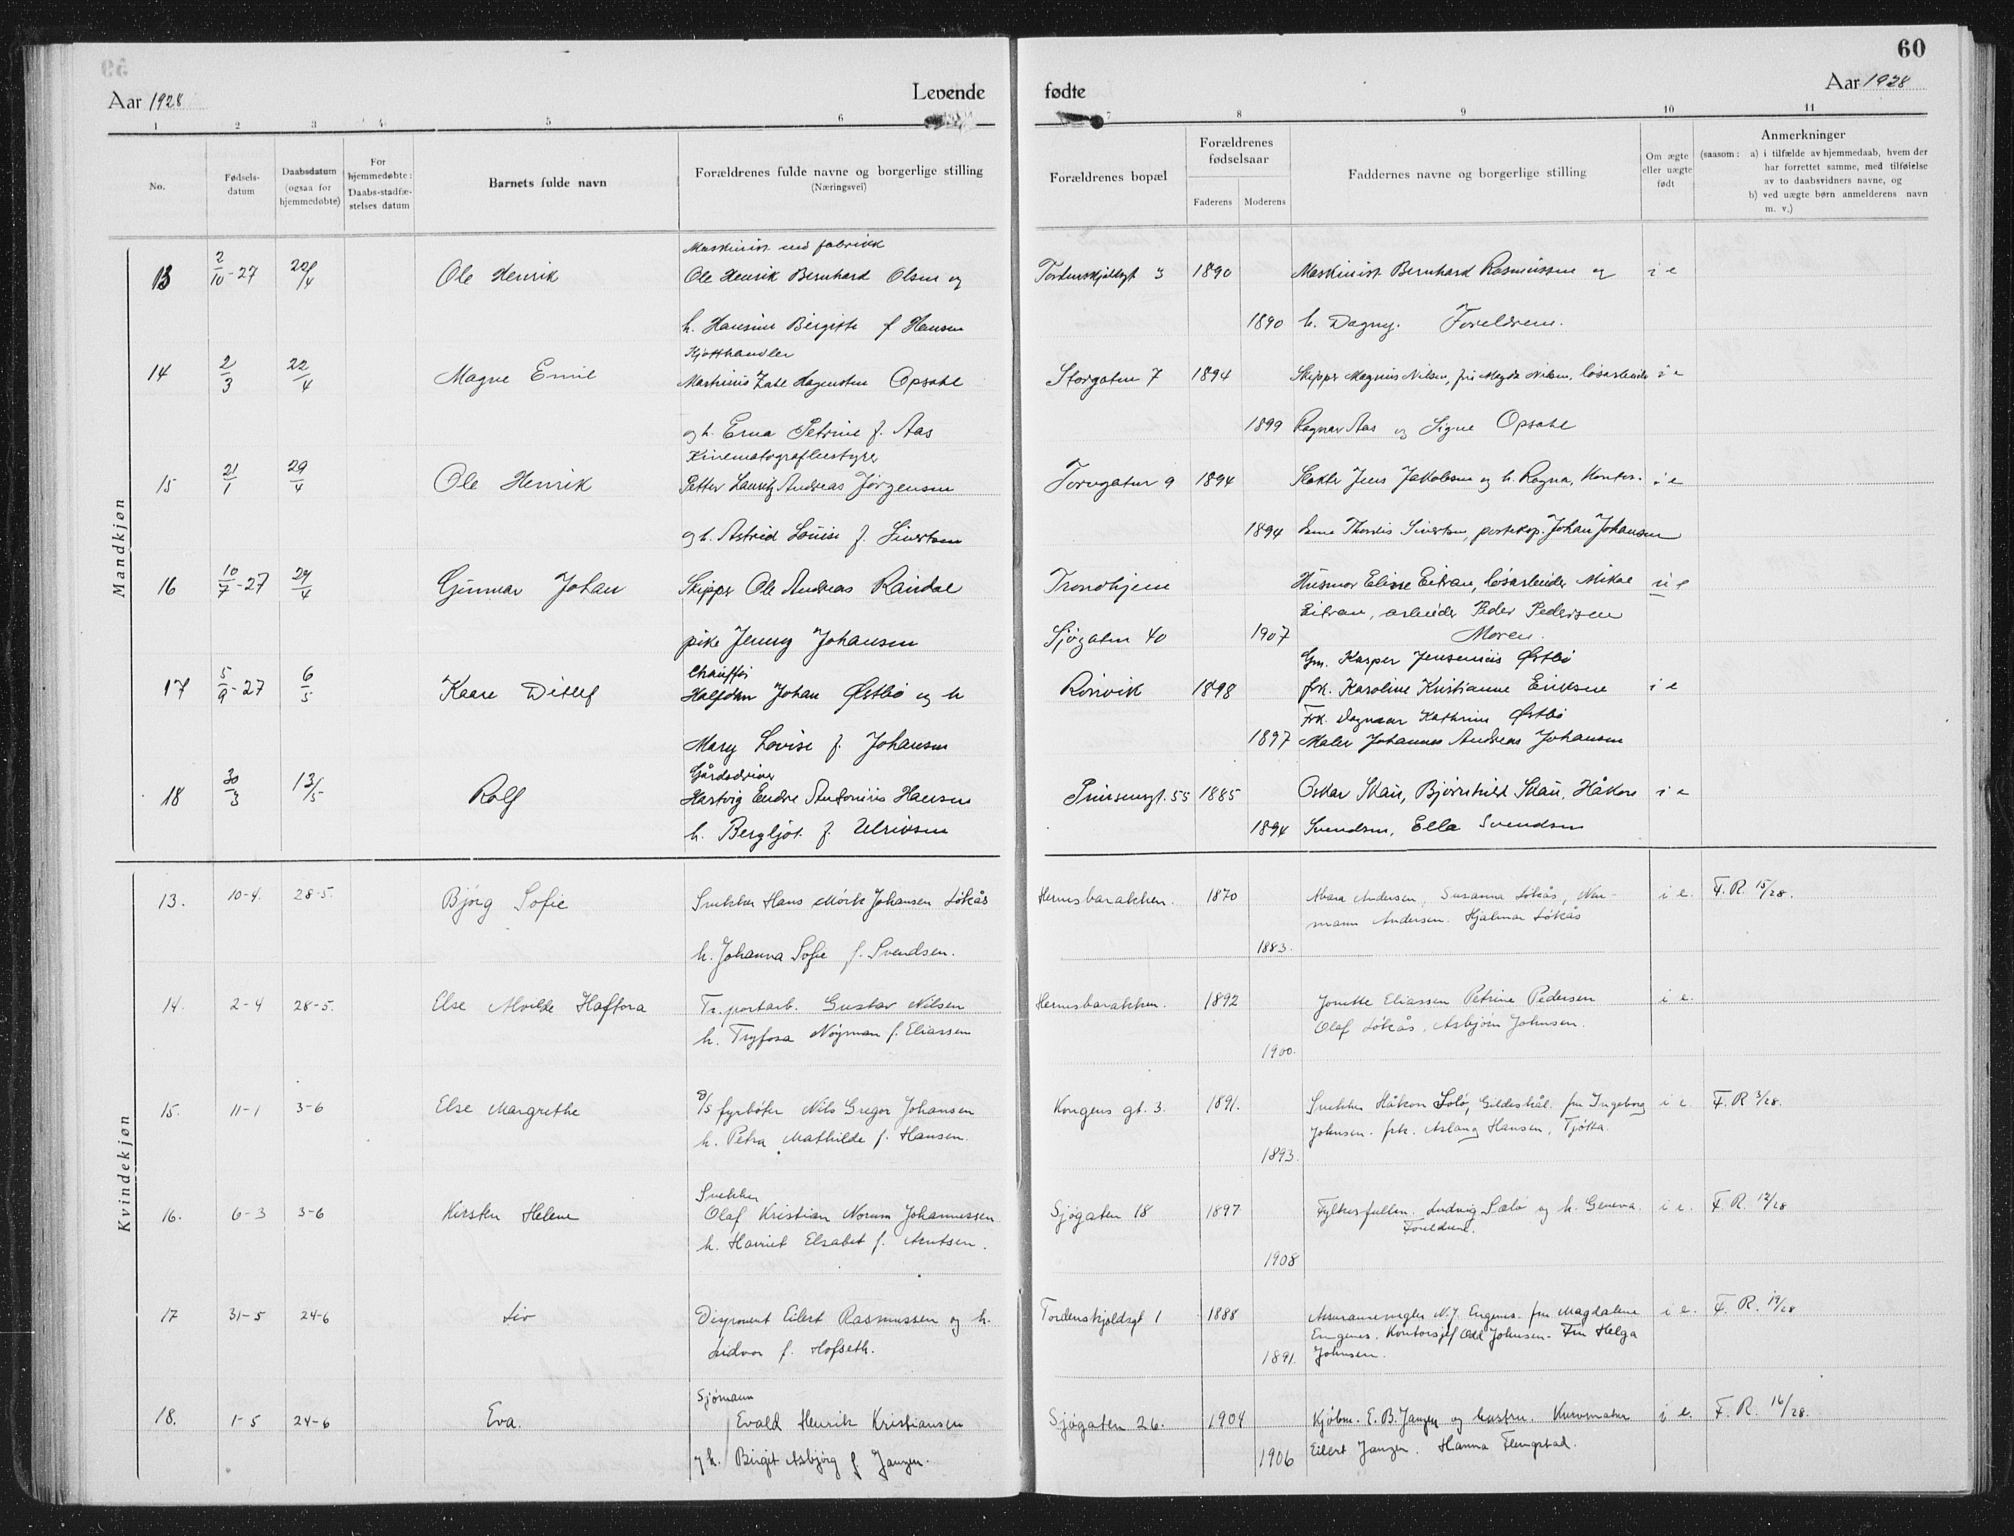 60
Aar 1928 Levende fødte Aar 1928
1 2 3 4 5 6 7 8 9 10 11
No.
Fødsels-
datum
Daabsdatum
(ogsaa for
hjemmedøbte)
For
hjemmedøbte:
Daabs-stadfæ-
stelses datum
Barnets fulde navn
Forældrenes fulde navne og borgerlige stilling
(Næringsvei)
Forældrenes bopæl
Forældrenes
fødselsaar
Faderens Moderens
Faddernes navne og borgerlige stilling
Om ægte
eller uægte
født
Anmerkninger
(saasom: a) i tilfælde av hjemmedaab, hvem der
har forrettet samme, med tilføielse
av to daabsvidners navne, og
b) ved uægte børn anmelderens navn
m. v.)
Mandkjøn
Maskinist ved fabrikk
13 2/10-27 22/4 Ole Henrik Ole Henrik Bernhard Olsen og Tordenskjoldsgt 3 1890 Maskinist Bernhard Rasmussen og i e
h. Hansine Birgitte f Hansen 1890 h. Dagny. Foreldrene.
Kjøtthandler
14 2/3 22/4 Magne Emil Martinus Zahl Hagensten Opsahl Storgaten 7 1894 Skipper Magnus Nilsen, fru Magda Nilsen, løsarbeider i e
og h. Erna Petrine f. Aas 1899 Ragnar Aas og Signe Opsahl
Kinematografbestyrer
15 21/1 29/4 Ole Henrik Petter Lauritz Andreas Jørgensen Torvgaten 9 1894 Slakter Jens Jakobsen og h. Ragna, Kontor- i e
og h. Astrid Louise f. Sivertsen 1894 dame Thordis Sivertsen, posteksp. Johan Johansen
16 10/7-27 29/4 Gunnar Johan Skipper Ole Andreas Randal Trondhjem Husmor Elisse Eitran, løsarbeider Mikal u e
Eitran, arbeider Peder Pedersen
pike Jenny Johansen Sjøgaten 40 1907 Moren.
Chauffør Gm. Kasper Jensenius Østbø
17 5/9-27 6/5 Kaare Ditlef Halfdan Johan Østbø og h Rønvik 1898 frk. Karoline Kristianne Eriksen i e
Frk. Dagmar Kathrine Østbø
Mary Lovise f. Johansen 1897 Maler Johannes Andreas Johansen
Gårdsdriver
18 30/3 13/5 Rolf Hartvig Endre Antonius Hansen Prinsensgt. 55 1885 Oskar Skau, Bjørnhild Skau, Håkon i e
h. Bergljot f. Ulriksen 1894 Svendsen, Ella Svendsen
Kvindekjøn
13. 10-4. 28-5. Bjørg Sofie Snekker Hans Mørk Johansen Løkås Hermsbarakken. 1870 Andersen, Susanna Løkås, Nor- i e. F. R. 15/28.
mann Andersen. Hjalmar Løkås
h. Johanna Sofie f. Svendsen. 1883.
14. 2-4 28-5. Else Alvilde Haftora Tr.portarb. Gustav Nilsen Hermsbarakken. 1892 Jonette Eliassen Petrine Pedersen i e.
h. Tryfosa Nøyman f. Eliassen Olaf Løkås, Asbjørn Johnsen.
1900.
15. 11-1 3-6 Else Margrethe D/S fyrbøter Nils Gregor Johansen Kongens gt. 3. 1891. Snekker Håkon Solø, Gildeskål. fru Ingeborg i e. F. R 3/28.
h. Petra Mathilde f. Hansen. Johnsen. frk. Aslaug Hansen, Tjøtta.
1893.
Snekker
16. 6-3 3-6 Kirsten Helene Olaf Kristian Norum Johannessen Sjøgaten 18 1897 Fylkesfullm. Ludvig Sælø og h. Geneva. i e. F. R. 12/28
h. Harriet Elsabet f. Arntsen. Foreldrene.
1908
17 31-5 24-6 Liv Disponent Eilert Rasmussen og h. Tordenskjoldsgt 1 1888 N.J. Engenes. fru Magdalene i e. F. R. 19/28
Lidvor f. Hofseth. Engenes. Kontorsjef Odd Johnsen. Fru Helga
1891. Johnsen.
Sjømann
18. 1-5 24-6 Eva. Evald Henrik Kristiansen Sjøgaten 26. 1904 Kjøbm. E. B. Janzen og hustru. Kurvmaker i e. F. R. 16/28.
og h. Birgit Asbjørg f Janzen. 1906 Eilert Janzen. Hanna Flengstad.